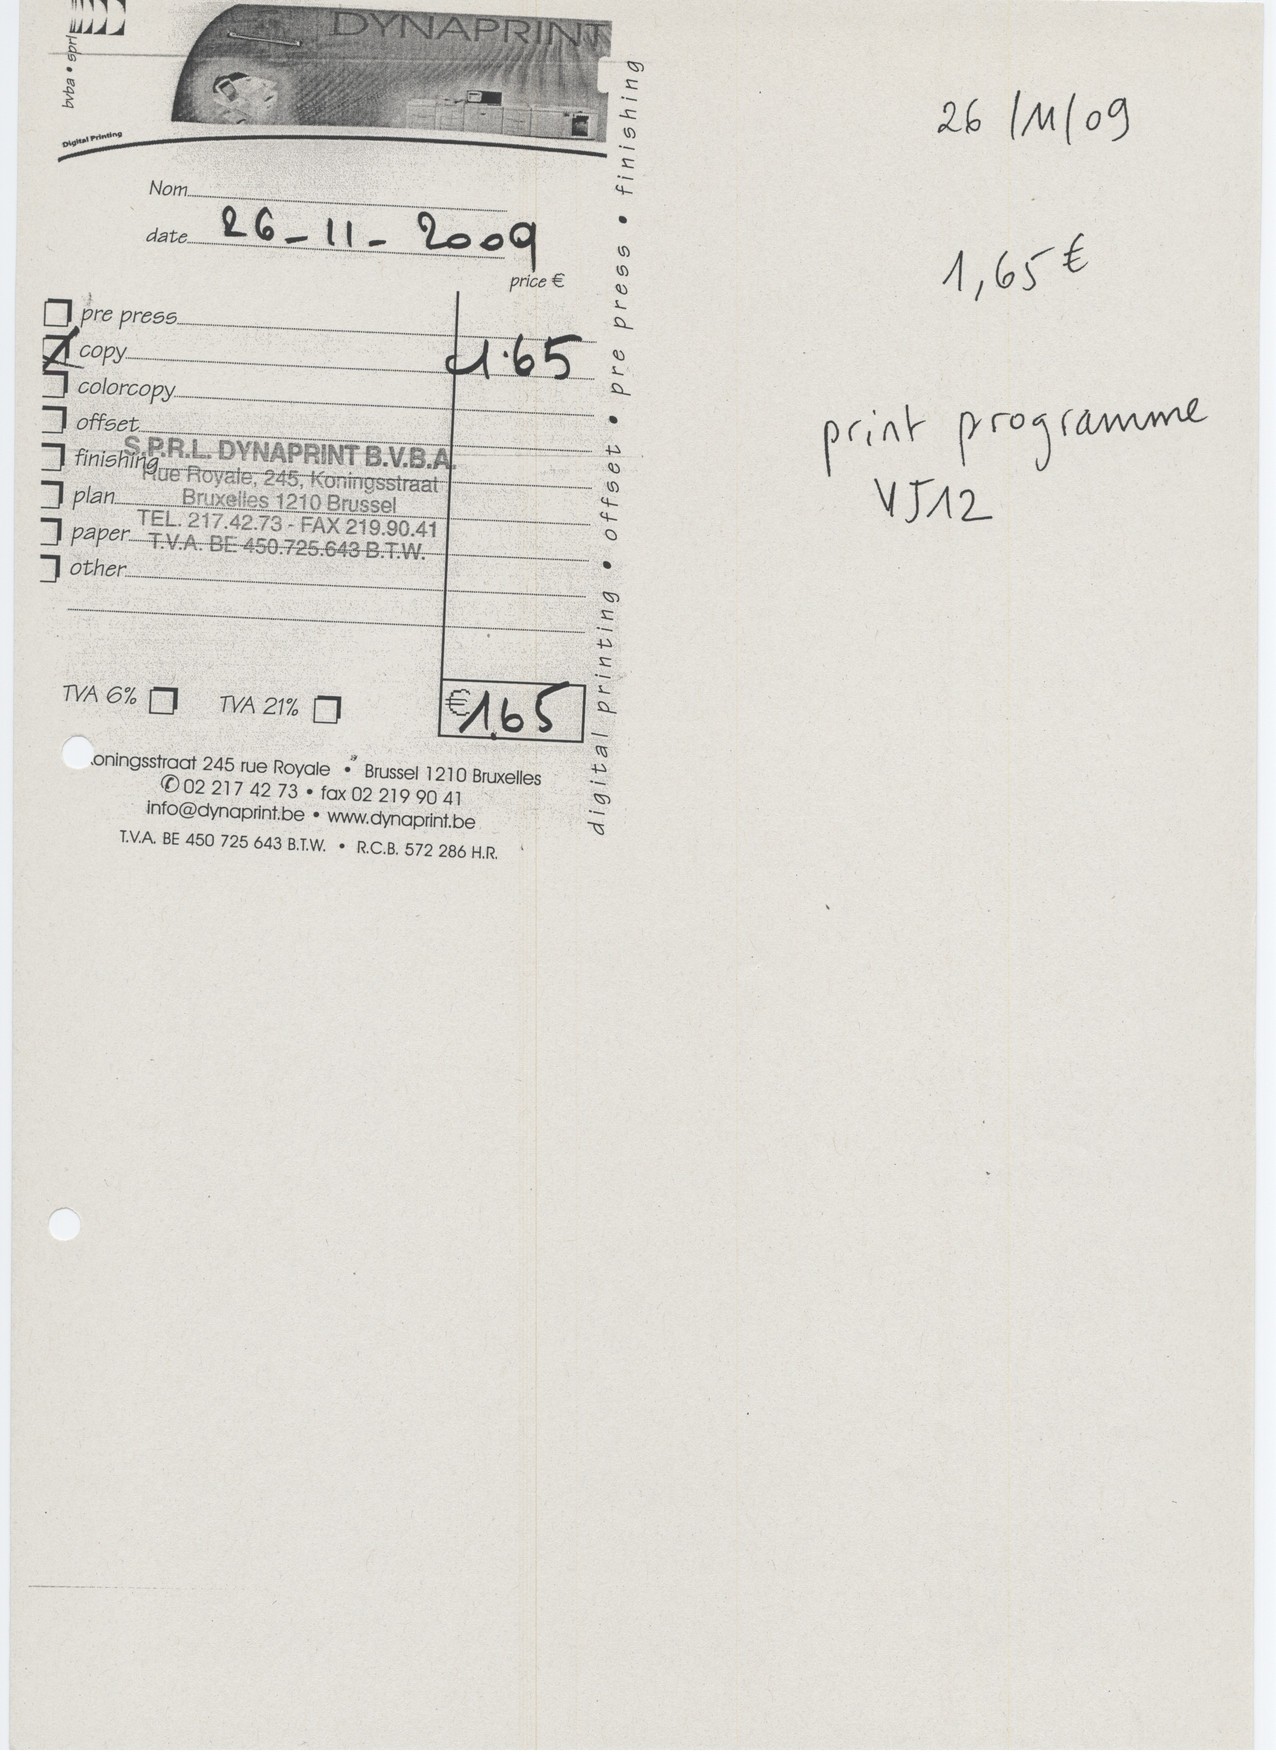 DYNAPRINT
bvba • sprl
Digital Printing
Nom
date 26-11-2009
price €
pre press
copy 1.65
colorcopy
offset
finishing
plan
paper
other
S.P.R.L. DYNAPRINT B.V.B.A.
Rue Royale, 245, Koningsstraat
Bruxelles 1210 Brussel
TEL. 217.42.73 - FAX 219.90.41
T.V.A. BE 450.725.643 B.T.W.
TVA 6% TVA 21% € 1.65
oningsstraat 245 rue Royale • Brussel 1210 Bruxelles
✆ 02 217 42 73 • fax 02 219 90 41
info@dynaprint.be • www.dynaprint.be
T.V.A. BE 450 725 643 B.T.W. • R.C.B. 572 286 H.R.
digital printing • offset • pre press • finishing
26/11/09
1,65 €
print programme
VJ12